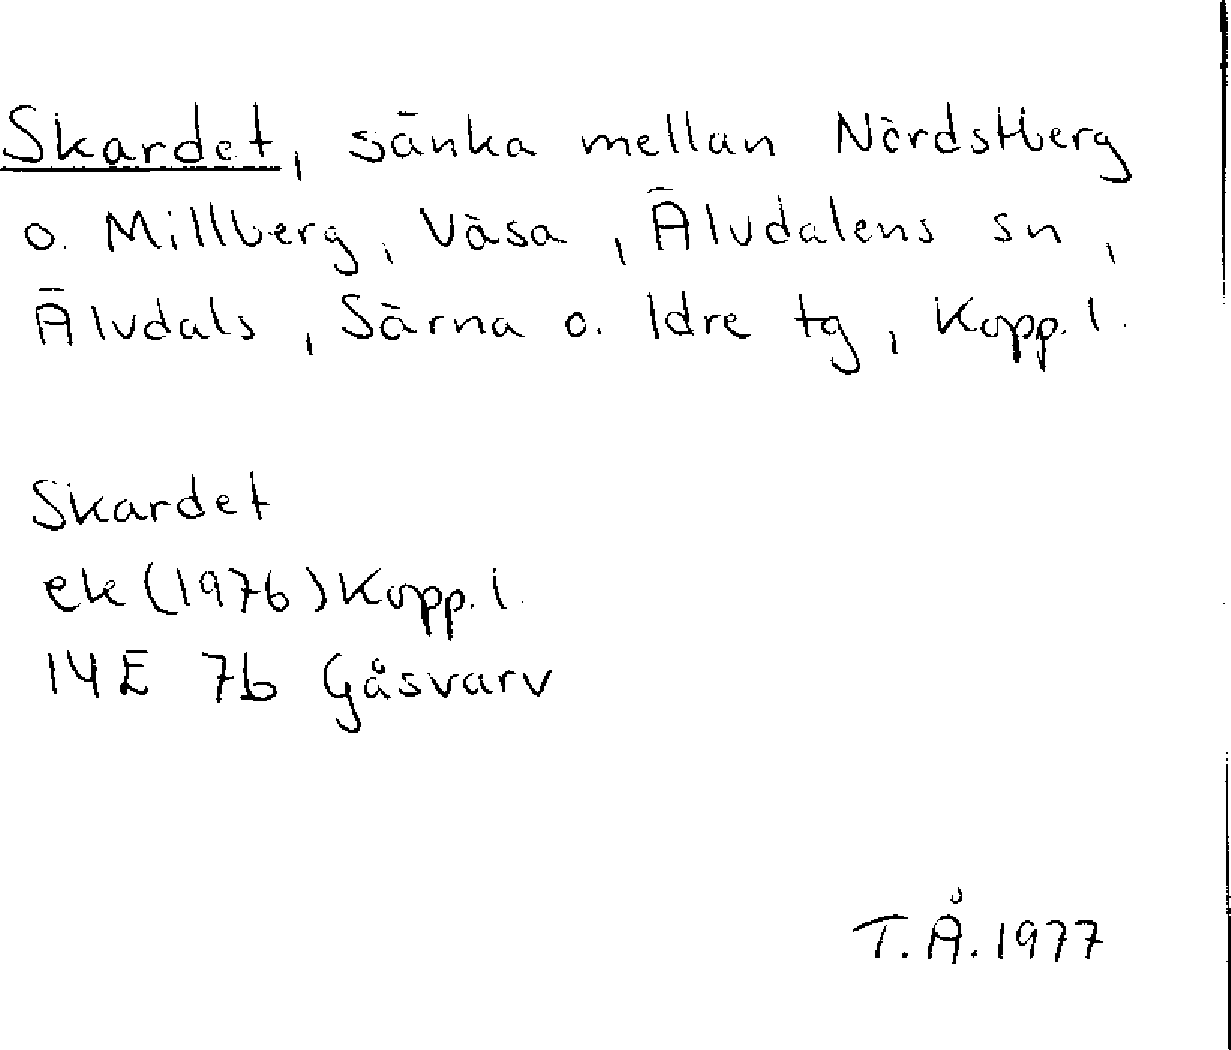 Skardet, sänka mellan Nördstberg
o. Millberg, Väsa, Älvdalens sn,
Älvdals, Särna o. Idre tg, Kopp. l.
Skardet
ek (1976) Kopp. l.
14E 7b Gåsvarv
T.Å. 1977